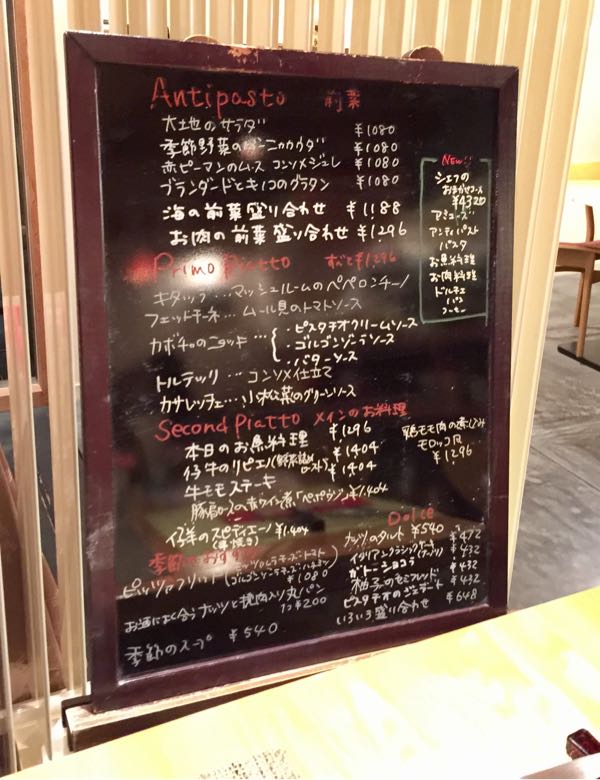 Antipasto 前菜
大地のサラダ ¥1080
季節野菜のバーニャカウダ ¥1080
赤ピーマンのムース コンソメジュレ ¥1080
ブランダードとキノコのグラタン ¥1080
海の前菜盛り合わせ ¥1188
お肉の前菜盛り合わせ ¥1,296
NEW!!
シェフの
おまかせコース
¥4320
アミューズ
アンティパスト
パスタ
お魚料理
お肉料理
ドルチェ
パン
コーヒー
Primo Piatto すべて¥1,296
キタッラ・・・マッシュルームのペペロンチーノ
フェットチーネ・・・ムール貝のトマトソース
カボチャのニョッキ・・・
・ピスタチオクリームソース
・ゴルゴンゾーラソース
・バターソース
トルテッリ・・・コンソメ仕立て
カサレッチェ・・・小松菜のグリーンソース
Second Piatto メインのお料理
本日のお魚料理 ¥1296
仔牛のリピエノ ¥1404
牛モモステーキ ¥1404
豚肩ロースの赤ワイン煮「ペポーゾ」¥1,404
仔羊のスピディエーノ ¥1,404
(串焼き)
鶏モモ肉の煮込み
モロッコ風
¥1296
季節のおすすめ
ピッツァフリット
¥1080
お酒によく合うナッツと挽肉入り丸パン
1コ ¥200
季節のスープ ¥540
Dolce
ナッツのタルト ¥540
イタリアンクラシックケーキ ¥472
ガトーショコラ ¥432
柚子のセミフレッド ¥432
ピスタチオのジェラート ¥432
いろいろ盛り合わせ ¥648